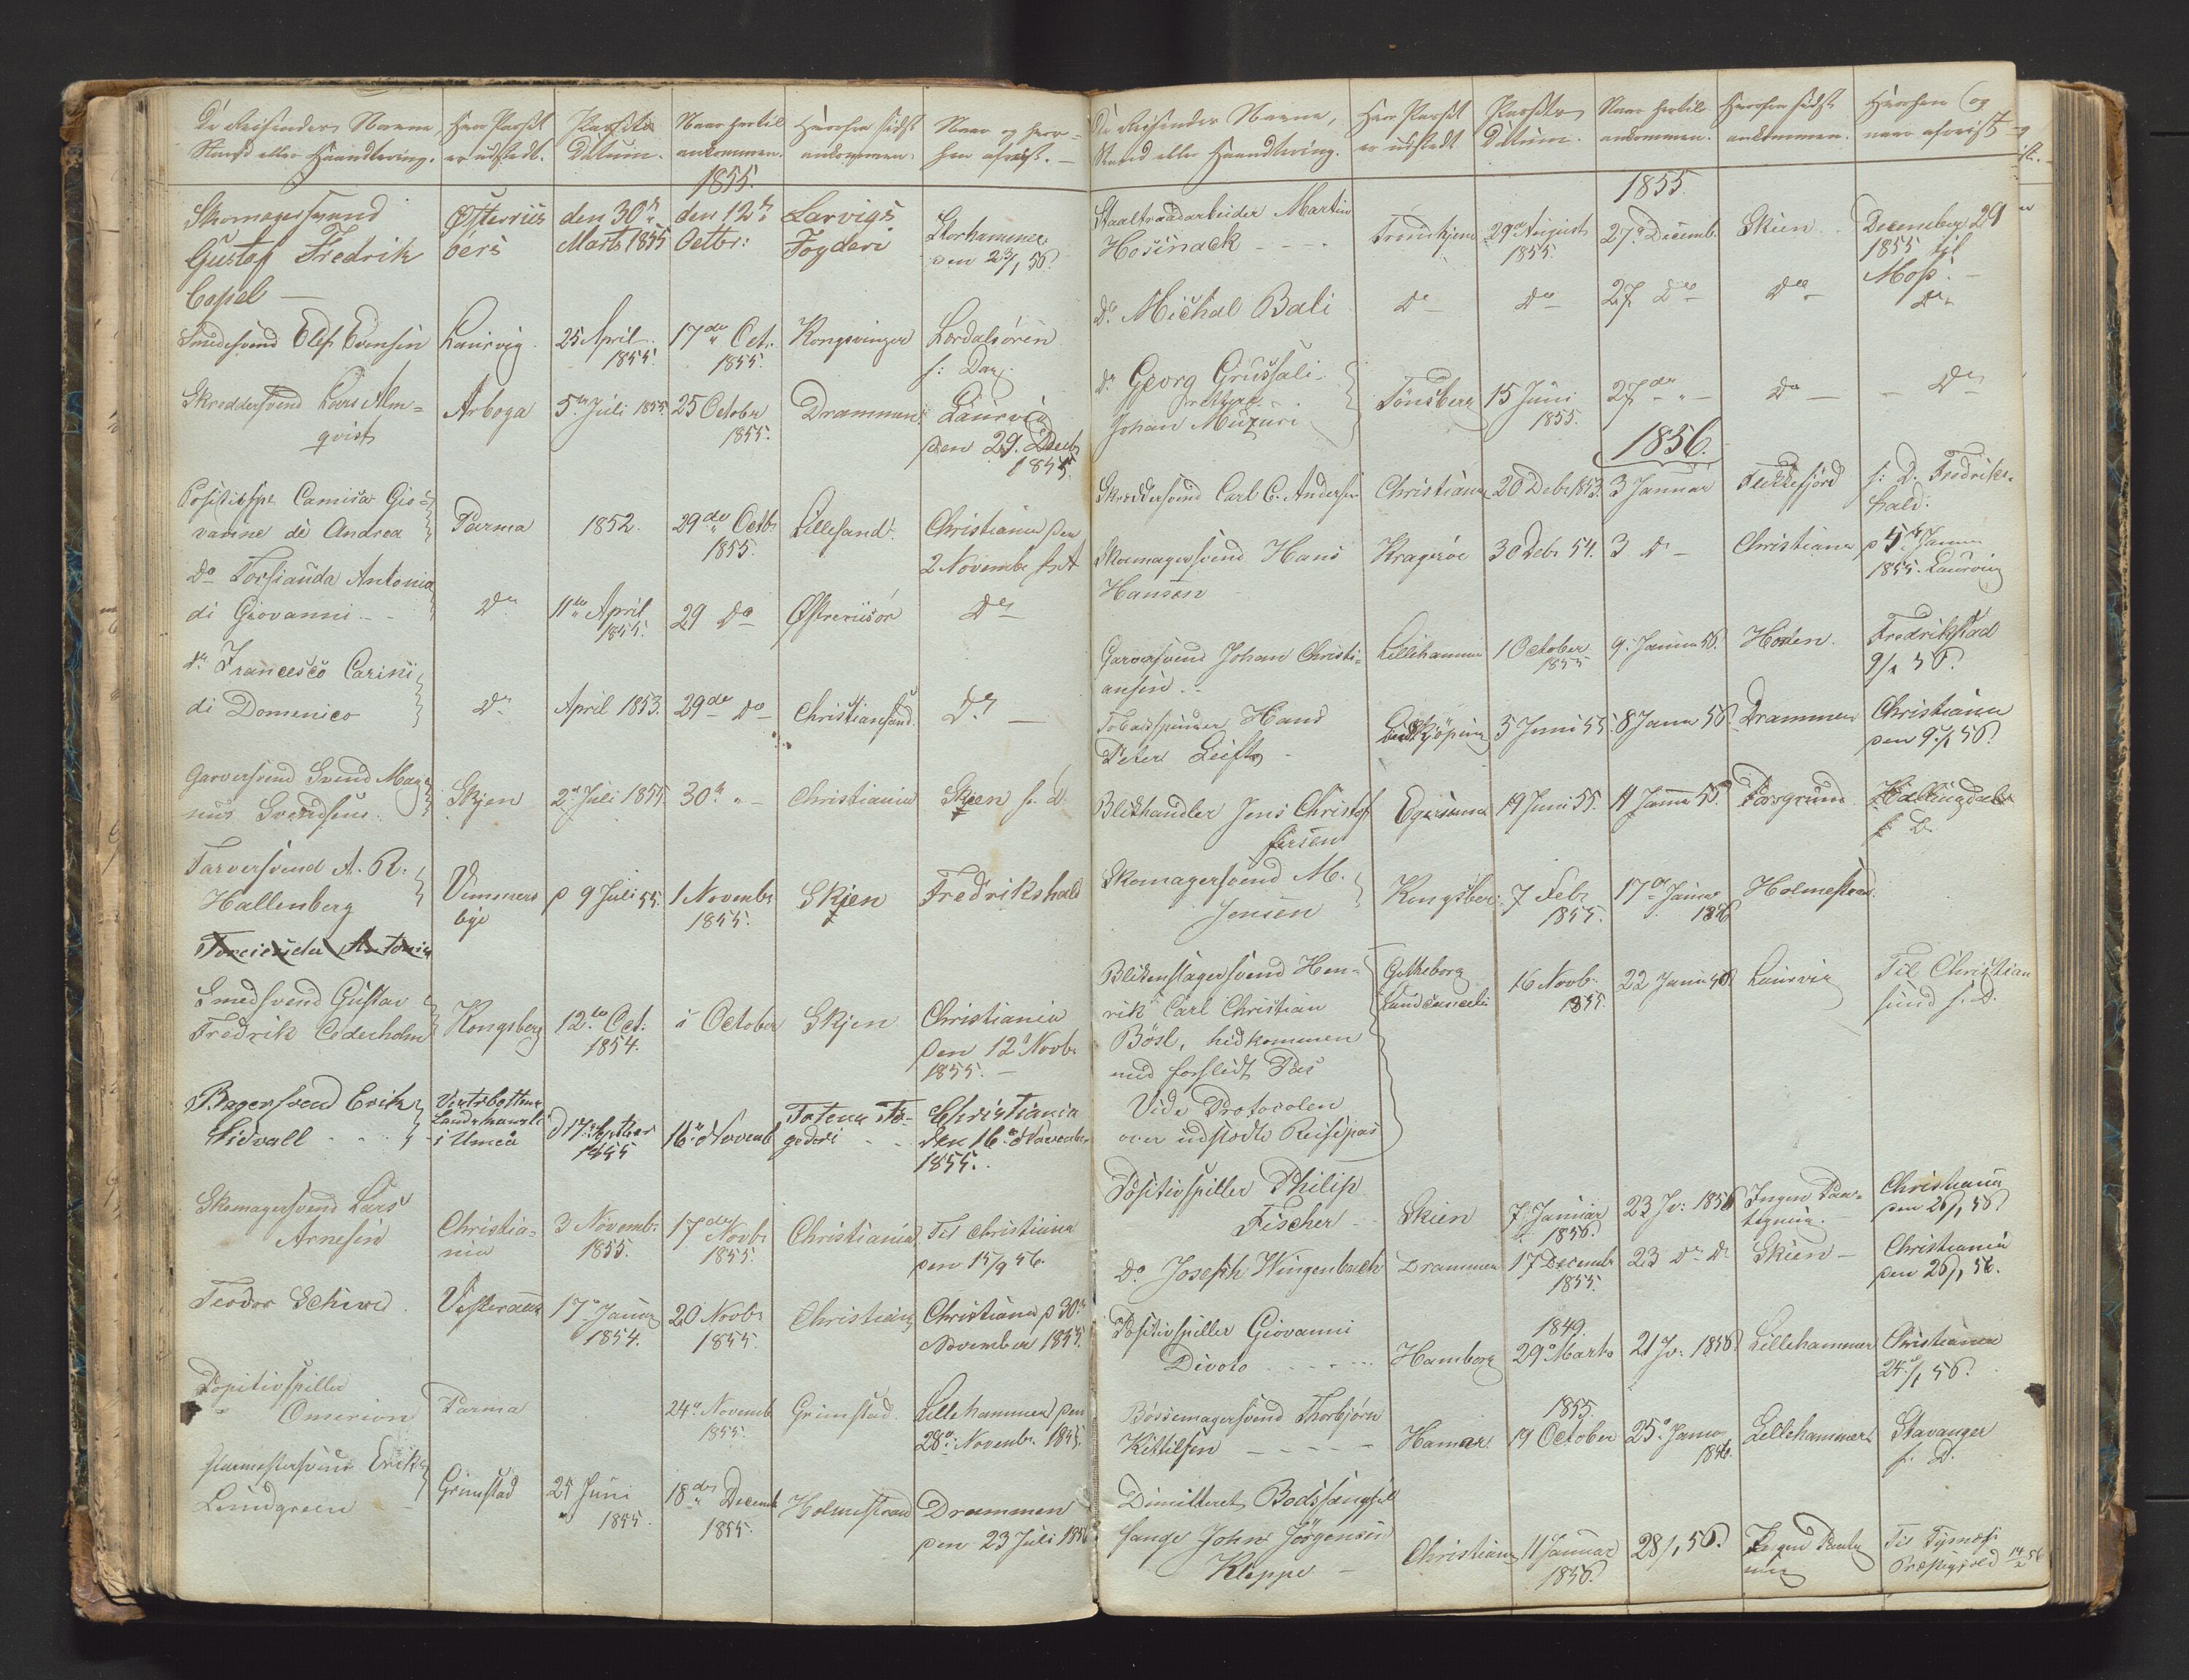 De Reisendes Navne,
Stand eller Haandtering.
Hvor Passet
er udstedt.
Passets
Datum.
Naar hertil
ankommen.
Hvorfra sidst
ankommen.
Naar og hvor-
hen afreist.
1855.
Skomagersvend
Gustaf Fredrik
Capel
Østerriis
öers
den 30te
Marts 1855
den 12te
Octbr:
Larvigs
Fogderi
Storhammer
den 23/1 56.
Smedesvend Olof Evensen
Laurvig
25 April
1855.
17de Oct.
1855.
Kongsvinger
Lærdalsøren
s: Dag.
Skreddersvend Lars Alm=
qvist
Arboga
5te Juli 1855
25 October
1855.
Drammen
Laurvig
den 29. Decb
1855.
Positivspl. Camisa Gio=
vanine di Andrea
Parma
1852.
29de Octb.
1855.
Lillesand.
Christiania den
2 Novembr
Do Torsianda Antonia
di Giovanni
Do
11te April
1855.
29 Do
Østreriisör
Do
do Francesco Carini
di Domenico
Do
April 1853.
29de Do
Christiansand.
Do
Garversvend Svend Mag=
nus Svendsen.
Skjen
2 Juli 1855
30te
Christiania
Skeen s. d.
Farversvend A. R.
Hallenberg
Vimmers
bye
p 9 Juli 55.
1 Novembr
1855.
Skjen
Fredrikshald
Smedsvend Gustav
Fredrik Cederholm
Kongsberg
12te Oct.
1854.
i October
Skjen
Christiania
den 12 Novb.
1855.
Bagersvend Erik
Sidvall
Vestrbottens
Landskansli
i Umeå
d 17 Septbr
1855
16de Novemb
Totens Fo-
gderi
Christiania
den 16 November
1855.
Skomagersvend Lars
Arnesen
Christia-
nia
3 Novemb.
1855.
17de Novb.
1855.
Christiania
Til Christiania
den 15/9 56.
Teodor Schwed
Vesteraas
17 Januar
1854.
20 Novb.
1855.
Christiania
Christiania p 30te
November 1855.
Positivspiller
Omerion
Parma
24 Novemb
1855.
Grimstad.
Lillehammer den
28 Novembr. 1855.
Erik
Lundgreen
Grimstad
25 Juni
1855.
18de Decemb
1855.
Holmestrand
Drammen
den 23 Juli 1856
De Reisendes Navne,
Stand eller Haandtering.
Hvor Passet
er udstedt
Passets
Datum.
Naar hertil
ankommen.
Hvorfra sidst
ankommen.
Hvorhen og
naar afreist
1855.
Staaltraadarbeider Martin
Hosinack
Trondhjem
29 August
1855.
27 Decemb.
Skien
December 29
1855 til
Moss.
Do Michal Bali
Do
Do
27 Do
Do
Do
do Georg Grussali
Johan Muzuri
Tönsberg
15 Juni
1855.
27de
Do
Do
1856.
Skreddersvend Carl C. Andersen
Christiania
20 Debr 1853.
3 Januar
Flekkefjord
s. D. Fredriks-
hald.
Skomagersvend Hans
Hansen
Kragerøe
30 Debr 54.
3 Do
Christiania
p 5 Januar
1855. Laurvig
Garversvend Johan Christi-
ansen
Lillehammer
1 October
1855
9 Janua 56.
Holen.
Fredrikstad
9/1 56.
Tobaksspinder Hans
Peter Leift
Lidkjöping
5 Juni 55
8 Janu 56
Drammen
Christiania
den 9/1 56.
Blikhandler Jens Christof
fersen
Egersund
19 Juni 55.
11 Janua 55.
Porsgrund
Hallingdal
s. D.
Skomagersvend M.
Jensen
Kongsber
7 Febr
1855.
17de Januar
1856
Holmestrand.
Blikkenslagersvend Hen-
rik Carl Christian
Bösl, hidkommen
med forslidt Pas
Vide Protocolen
over udstedte Reisepas
Gotheborg
Landcancelli
16 Novb.
1855.
22 Janu 56
Laurvig
Til Christian
sund s. D.
Positivspiller Philip
Fischer
Skien
7 Januar
1856.
23 Jr: 1856
Ingen Paa-
tegning.
Christiania
den 26/1 56.
Do Joseph Wingenbach
Drammen
17 Decembr
1855.
23 Do Do
Skien
Christiania
den 26/1 56.
Positivspiller Giovanni
Divoto
Hamborg
1849.
29 Marts
21 Jr: 1856
Lillehammer
Christiania
24/1 56.
Bössemagersvend Thorbjørn
Kittilsen
Hamar
1855.
19 October
25 Janua
1856.
Lillehammer
Stavanger
s. D.
Dimitteret Bodsfængsels
fange John Jörgensen
Kleppe
Christiania
11 Januar
1856.
28/1 56.
Ingen Paateg
ning
Til Tysnæs
Præstegjeld 14/2 56